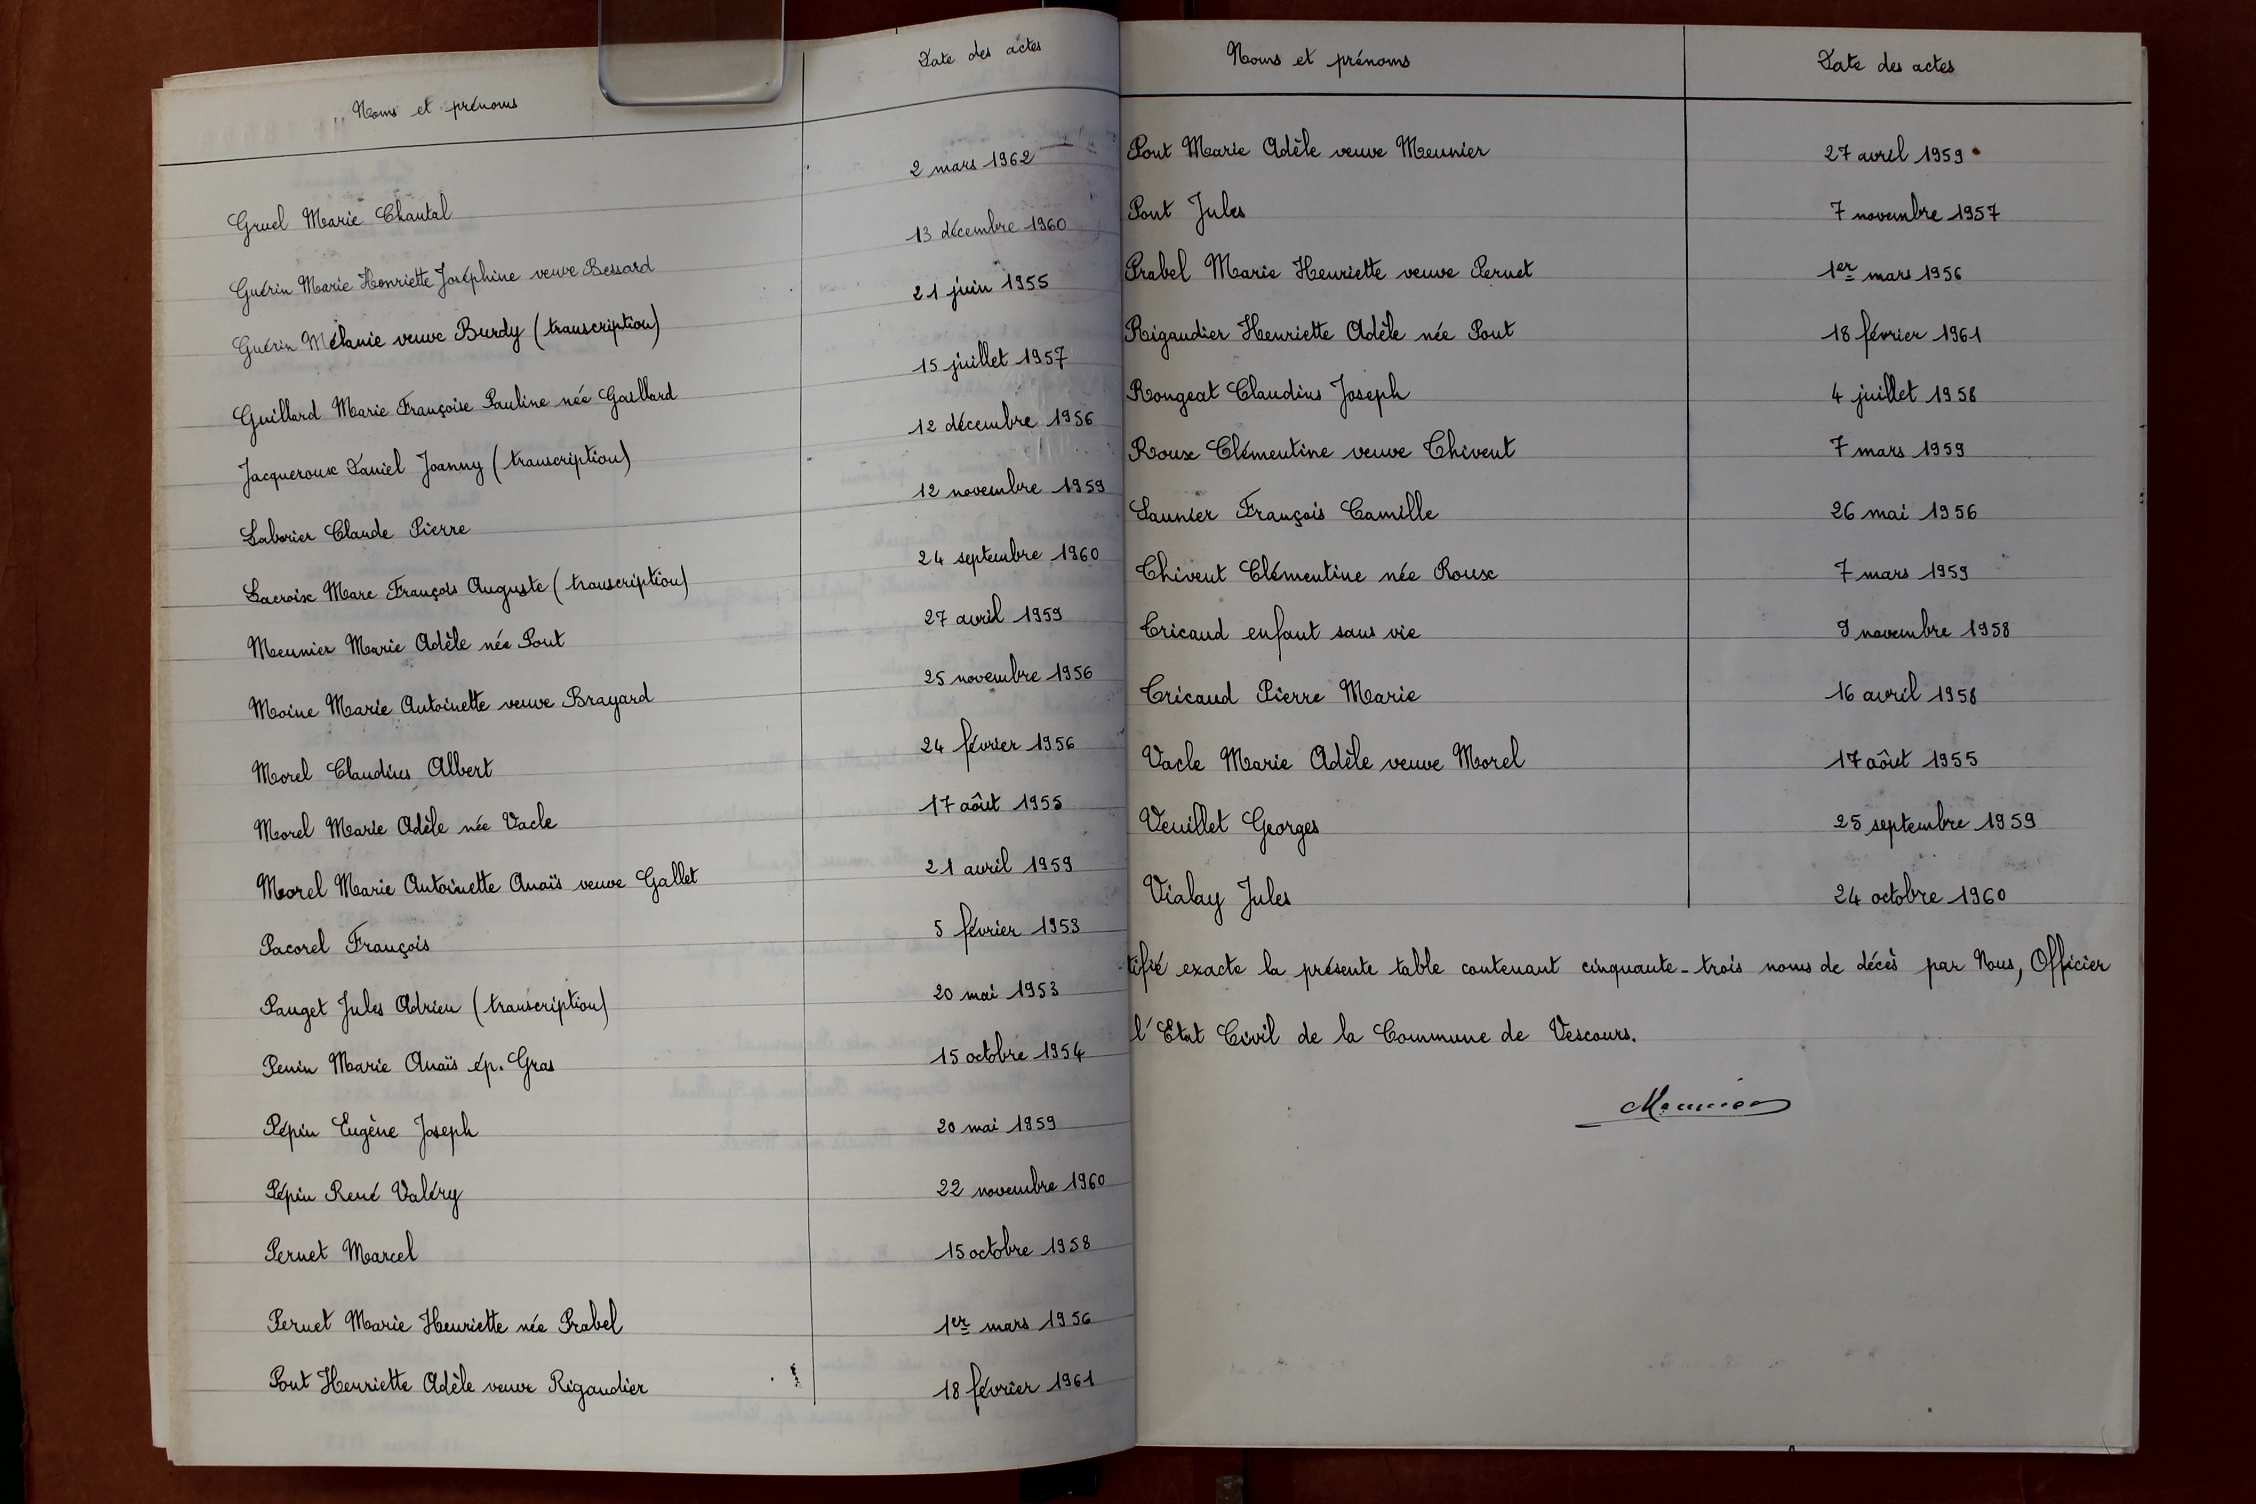 Noms et prénoms Date des actes
Gruel Marie Chantal 2 mars 1962
Guérin Marie Henriette Joséphine veuve Bessard 13 décembre 1960
Guérin Mélanie veuve Burdy (transcription) 21 juin 1955
Guillard Marie Françoise Pauline née Gaillard 15 juillet 1957
Jacqueroux Daniel Joanny (transcription) 12 décembre 1956
Laborier Claude Pierre 12 novembre 1959
Lacroix Marc François Auguste (transcription) 24 septembre 1960
Meunier Marie Adèle née Pont 27 avril 1959
Moine Marie Antoinette veuve Brayard 25 novembre 1956
Morel Claudius Albert 24 février 1956
Morel Marie Adèle née Vacle 17 aôut 1955
Morel Marie Antoinette Anaïs veuve Gallet 21 avril 1959
Pacorel François 5 février 1953
Pauget Jules Adrien (transcription) 20 mai 1953
Penin Marie Anaïs ép. Gras 15 octobre 1954
Pépin Eugène Joseph 20 mai 1959
Pépin René Valéry 22 novembre 1960
Pernet Marcel 15 octobre 1958
Pernet Marie Henriette née Prabel 1er mars 1956
Pont Henriette Adèle veuve Rigaudier 18 février 1961
Noms et prénoms Date des actes
Pont Marie Adèle veuve Meunier 27 avril 1959
Pont Jules 7 novembre 1957
Prabel Marie Henriette veuve Pernet 1er mars 1956
Rigaudier Henriette Adèle née Pont 18 février 1961
Rongeat Claudius Joseph 4 juillet 1958
Roux Clémentine veuve Thivent 7 mars 1959
Saunier François Camille 26 mai 1956
Thivent Clémentine née Roux 7 mars 1959
Tricaud enfant sans vie 9 novembre 1958
Tricaud Pierre Marie 16 avril 1958
Vacle Marie Adèle veuve Morel 17 aôut 1955
Veuillet Georges 25 septembre 1959
Vialay Jules 24 octobre 1960
tifié exacte la présente table contenant cinquante-trois noms de décès par Nous, Officier
l'Etat Civil de la Commune de Vescours.
Meunier